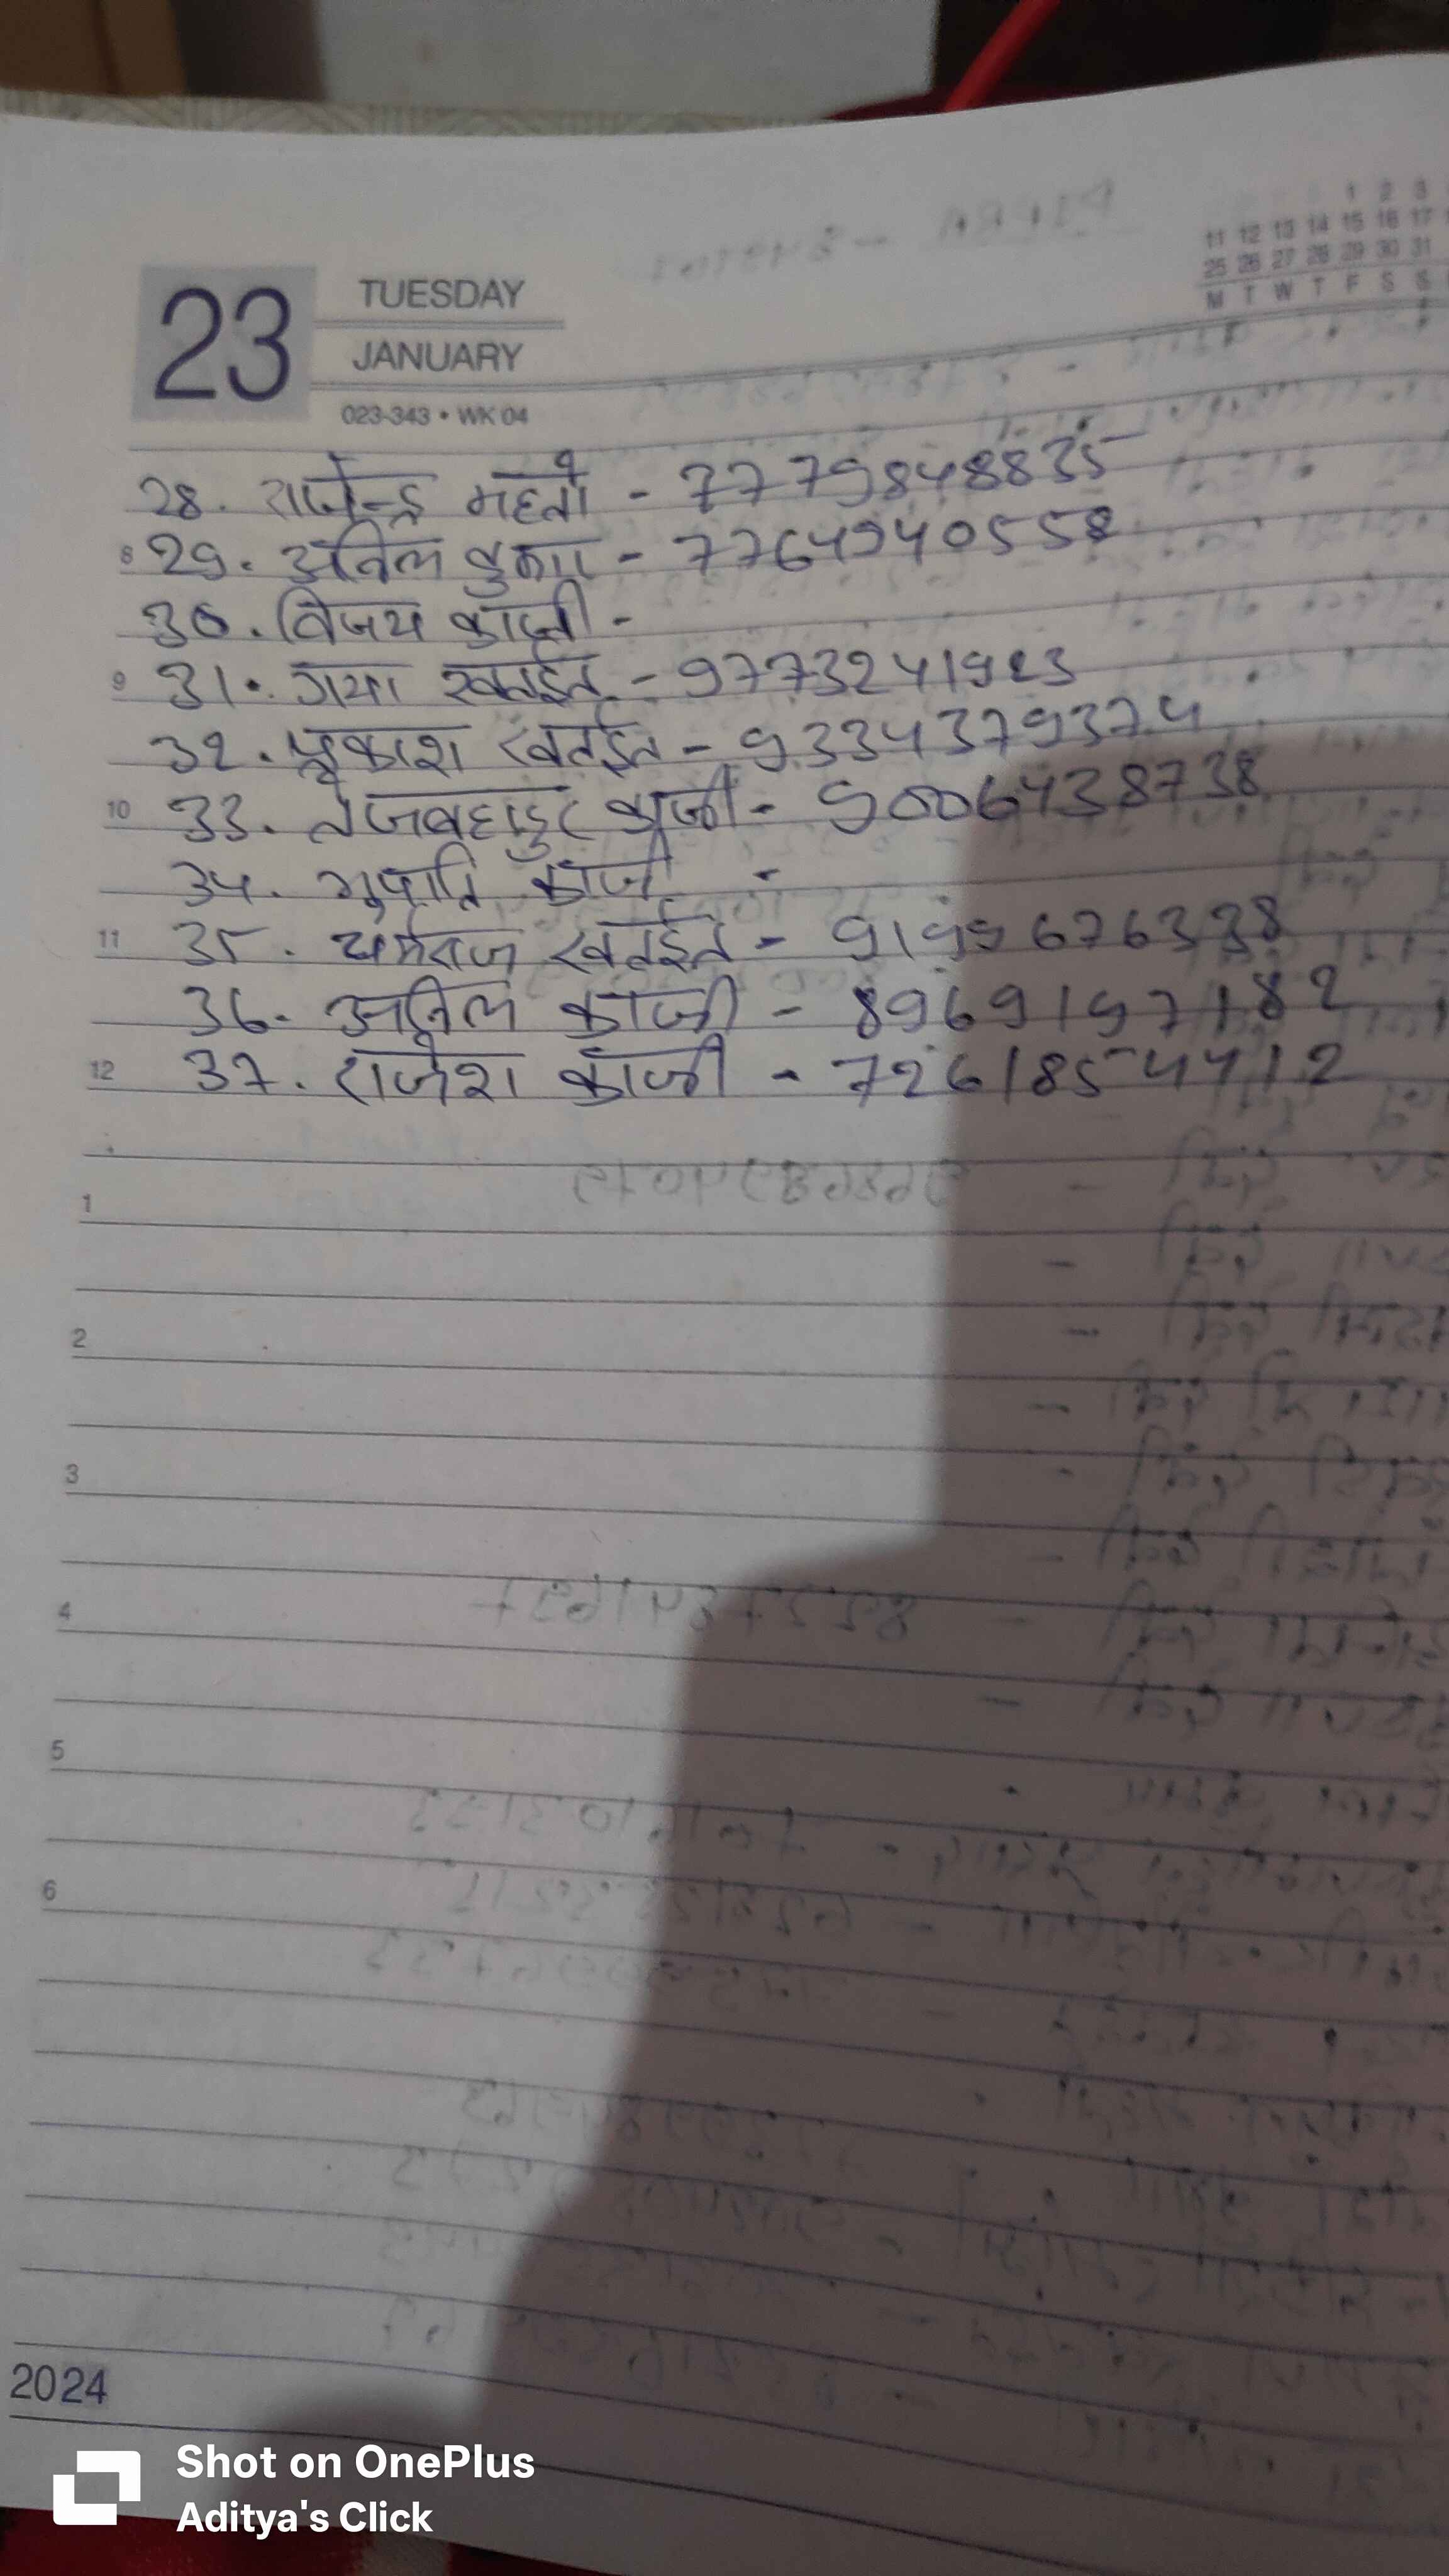 23 TUESDAY
JANUARY
023-343 • WK 04
1 2 3
11 12 13 14 15 16 17
25 26 27 28 29 30 31
M T W T F S S
28. राजेन्द्र महतो - 7779848835
8 29. अनिल कुमार - 7764940558
30. विजय काजी -
9 31. गया खतईत - 9773241923
32. प्रकाश खतईत - 9334379374
10 33. तेजबहादुर काजी - 9006438738
34. काजी -
11 35. धर्मराज खतईत - 9199676338
36. अनिल काजी - 8969197182
12 37. राजेश काजी - 7261854412
1
2
3
4
5
6
2024
Shot on OnePlus
Aditya's Click